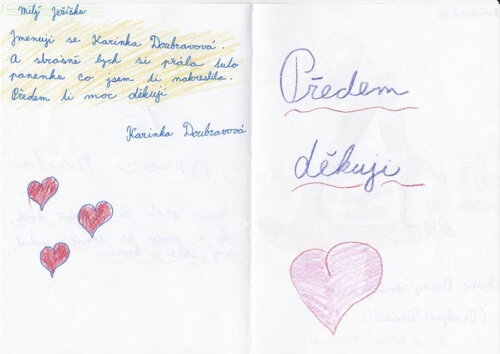 Milý Ježíšku
Jmenuji se Karinka Doubravová.
A strašně bych si přála tuto
panenku co jsem ti nakreslila.
Předem ti moc děkuji
Karinka Doubravová
Předem
děkuji